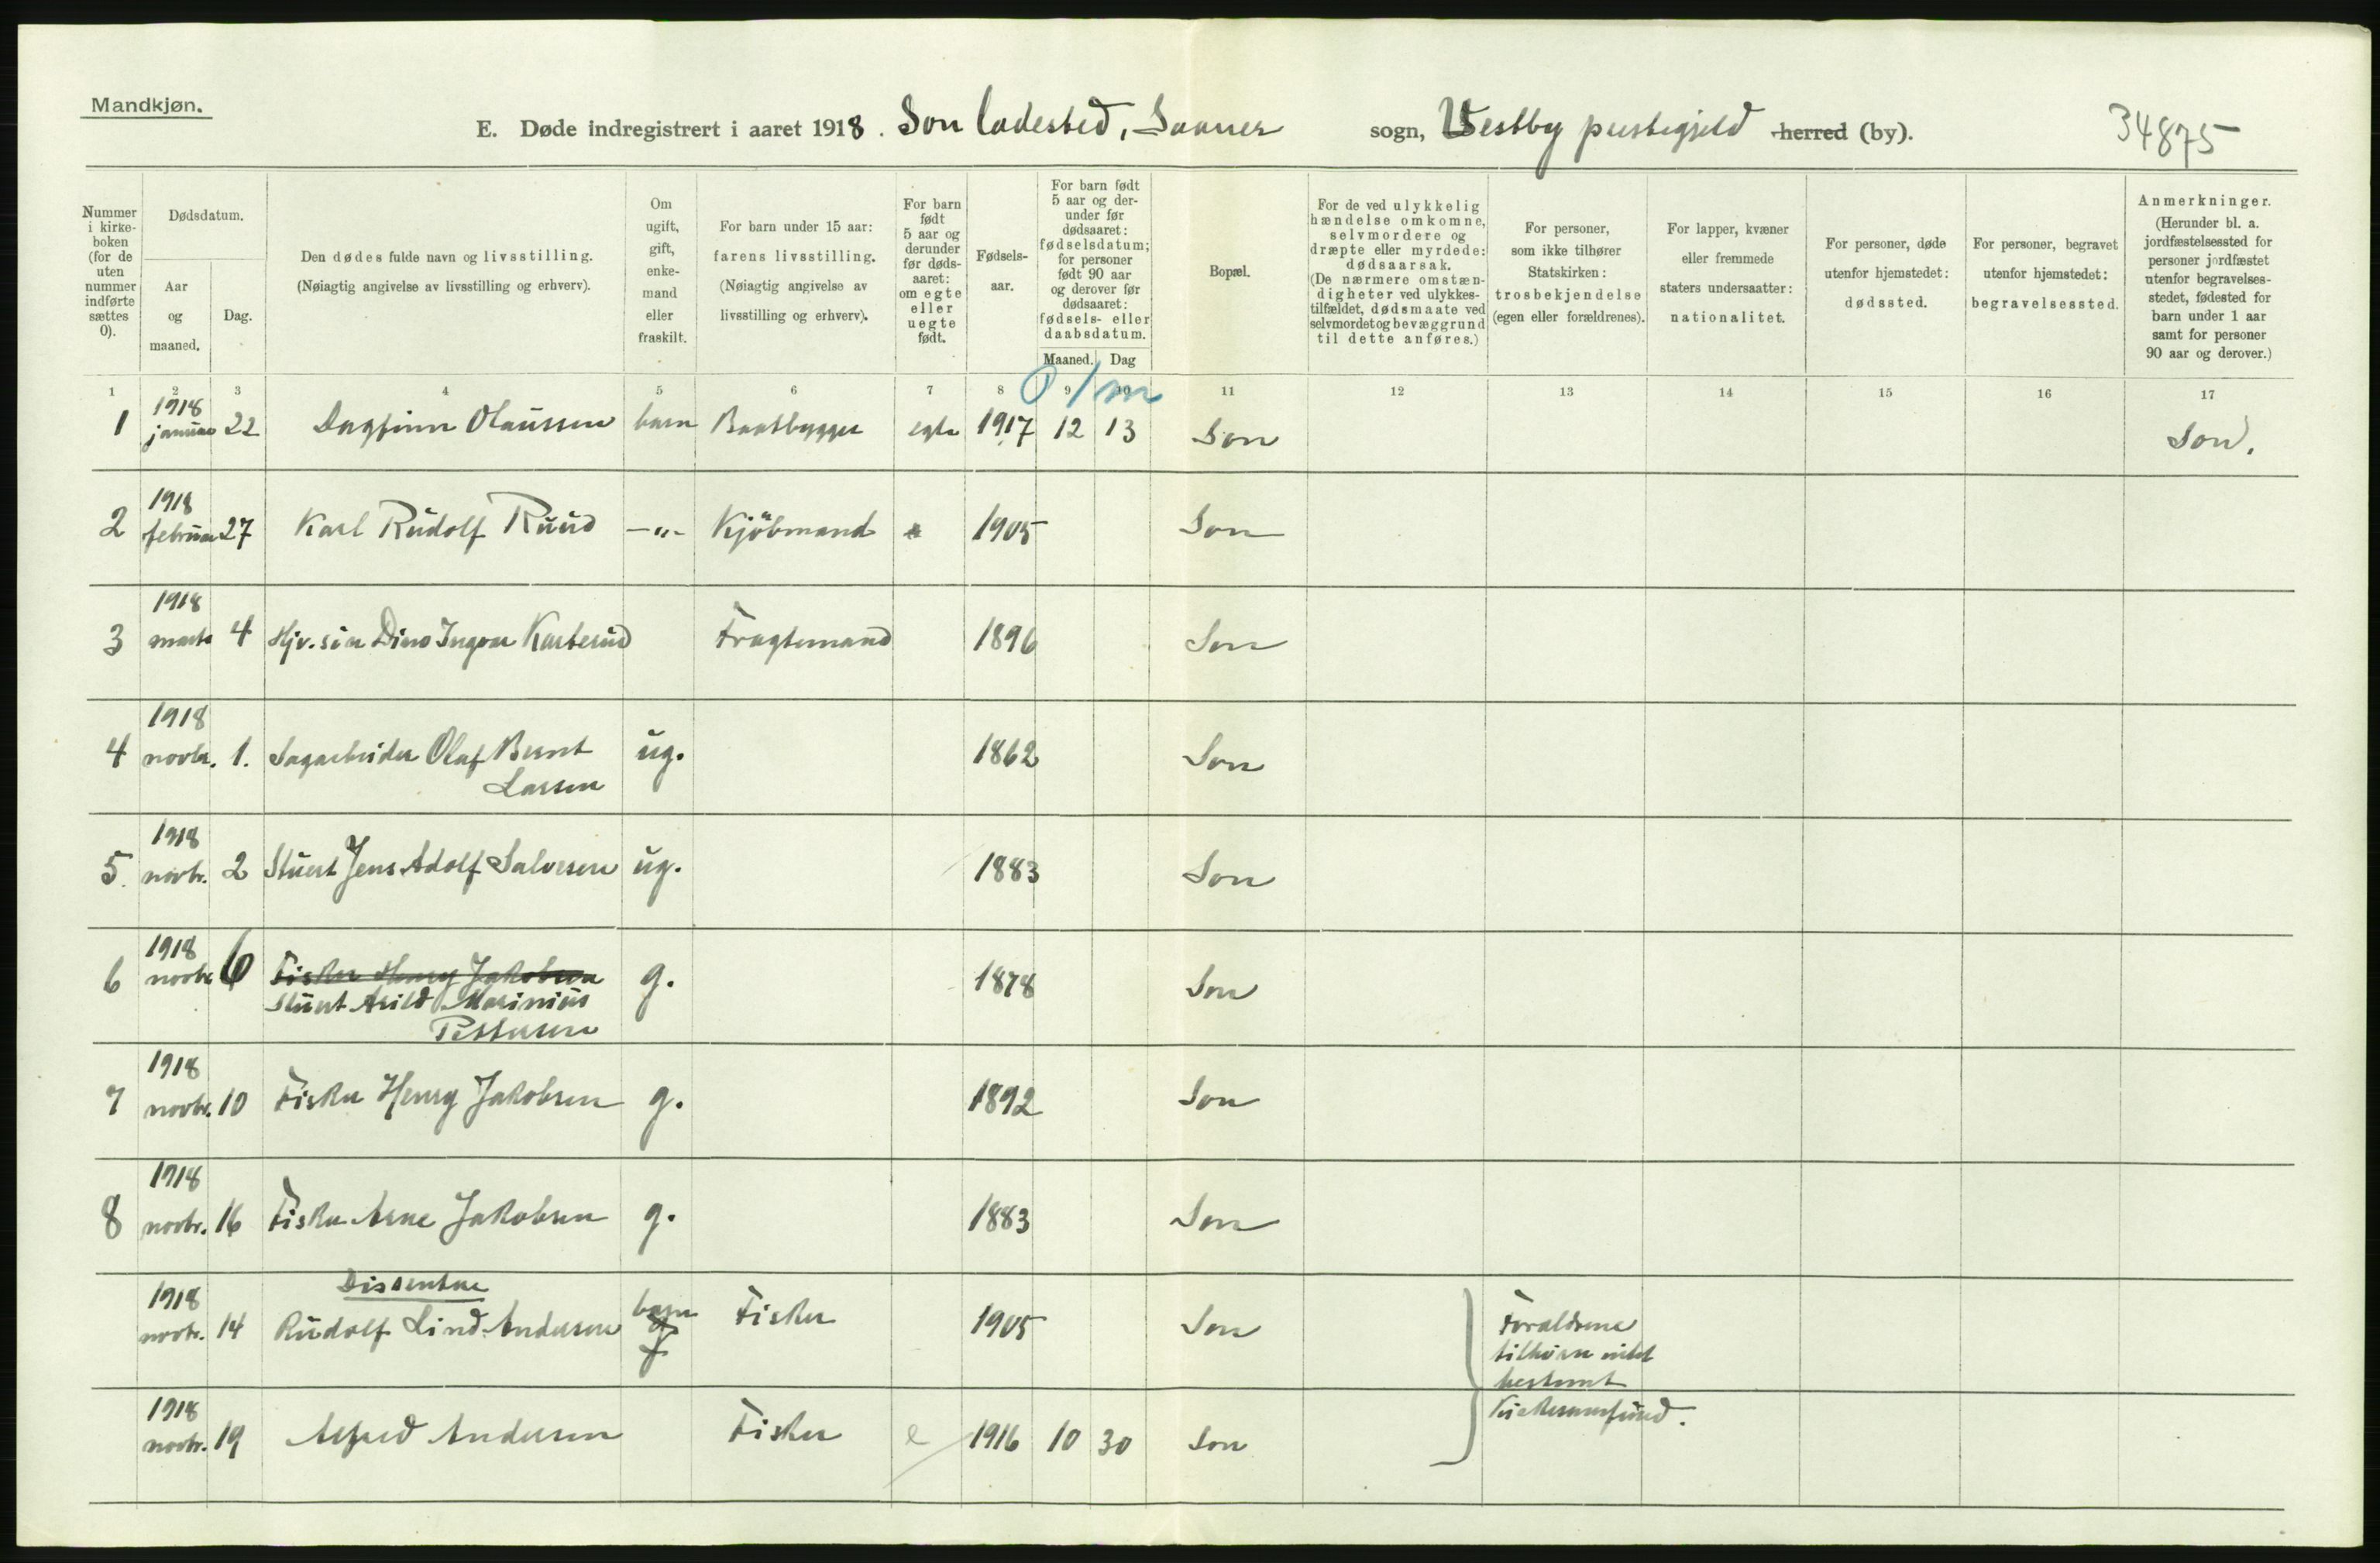 Mandkjøn.
E. Døde indregistrert i aaret 1918. Son ladested, Saaner sogn, Vestby prestegjeld herred (by). 34875
Nummer i kirke- boken (for de uten nummer indførte sættes 0).
Dødsdatum.
Aar og maaned.
Dag.
Den dødes fulde navn og livsstilling.
(Nøiagtig angivelse av livsstilling og erhverv).
Om ugift, gift, enke- mand eller fraskilt.
For barn under 15 aar: farens livsstilling. (Nøiagtig angivelse av livsstilling og erhverv).
For barn født 5 aar og derunder før døds- aaret: om egte eller uegte født.
Fødsels- aar.
For barn født 5 aar og der- under før dødsaaret: fødselsdatum; for personer født 90 aar og derover før dødsaaret: fødsels- eller daabsdatum.
Maaned. Dag
Bopæl.
For de ved ulykkelig hændelse omkomne, selvmordere og dræpte eller myrdede: dødsaarsak. (De nærmere omstæn- digheter ved ulykkes- tilfældet, dødsmaate ved selvmordet og bevæggrund til dette anføres.)
For personer, som ikke tilhører Statskirken: trosbekjendelse (egen eller forældrenes).
For lapper, kvæner eller fremmede staters undersaatter: nationalitet.
For personer, døde utenfor hjemstedet: dødssted.
For personer, begravet utenfor hjemstedet: begravelsessted.
Anmerkninger. (Herunder bl. a. jordfæstelsessted for personer jordfæstet utenfor begravelses- stedet, fødested for barn under 1 aar samt for personer 90 aar og derover.)
1 2 3 4 5 6 7 8 9 10 11 12 13 14 15 16 17
0/m
1 1918 januar 22 Dagfinn Olaussen barn Baatbygger egte 1917 12 13 Son Son.
2 1918 februar 27 Karl Rudolf Ruud -"- Kjöbmand 1905 Son
3 1918 marts 4 Hjv. søn Dino Ingvar Karterud Fragtemand 1896 Son
4 1918 novbr. 1. Sagarbeider Olaf Bernt
Larsen ug. 1862 Son
5. 1918 novbr. 2 Stuert Jens Adolf Salvesen ug. 1883 Son
6 1918 novbr. 6 Fisker Henry Jakobsen g. 1878 Son
Stuert Arild Marinius
Pettersen
7 1918 novbr. 10 Fisker Henry Jakobsen g. 1892 Son
8 1918 novbr. 16 Fisker Arne Jakobsen g. 1883 Son
Dissentere
1918 novbr. 14 Rudolf Lind Andersen barn Fisker 1905 Son
Forældrene
tilhører intet
bestemt
Kirkesamfund.
1918 novbr. 19 Alfred Andersen Fisker e 1916 10 30 Son